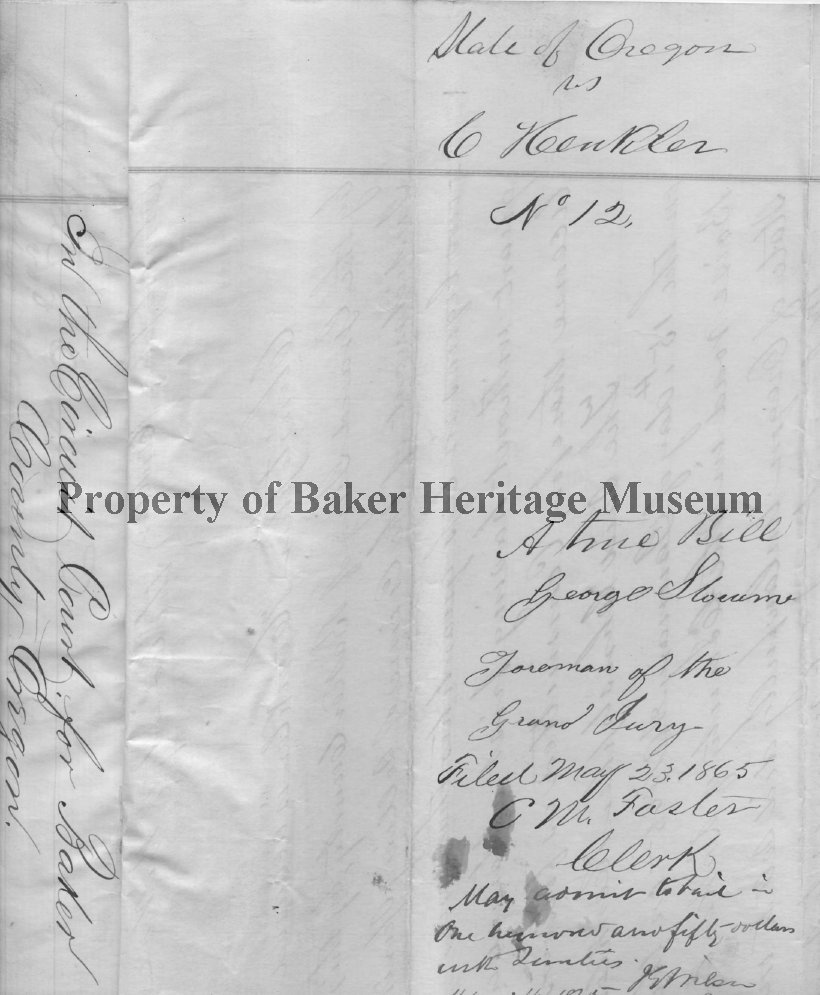 State of Oregon
vs
C Henkler
No 12.
A true Bill
George Slocum
Foreman of the
Grand Jury
Filed May 23, 1865
C M. Foster
Clerk
May admit to bail in
One hundred and fifty dollars
with
In the Circuit Court, for Baker
County Oregon.
Property of Baker Heritage Museum